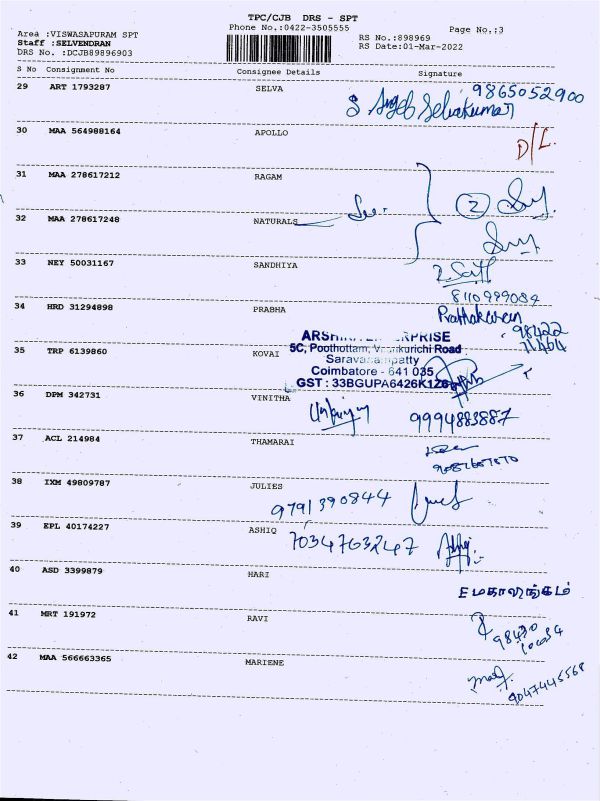 TPC/CJB DRS - SPT
Phone No.:0422-3505555
Page No.:3
Area :VISWASAPURAM SPT
Staff :SELVENDRAN
DRS No. :DCJB89896903
RS No.:898969
RS Date:01-Mar-2022
S No Consignment No Consignee Details Signature
29 ART 1793287 SELVA 9865052900
S Selvakumar
30 MAA 564988164 APOLLO D/L.
31 MAA 278617212 RAGAM 2
32 MAA 278617248 NATURALS
33 NEY 50031167 SANDHIYA
8110999084
34 HRD 31294898 PRABHA Prabhakaran
98422
ARSH PRISE
5C, Poothottam, kurichi Road
35 TRP 6139860 KOVAI
Saravanampatty
Coimbatore - 641 035
GST : 33BGUPA6426K1Z6
36 DPM 342731 VINITHA 9994883887
37 ACL 214984 THAMARAI
38 IXM 49809787 JULIES 9791390844
39 EPL 40174227 ASHIQ 7034763247
40 ASD 3399879 HARI E மகாலிங்கம்
41 MRT 191972 RAVI
42 MAA 566663365 MARIENE
9047445568